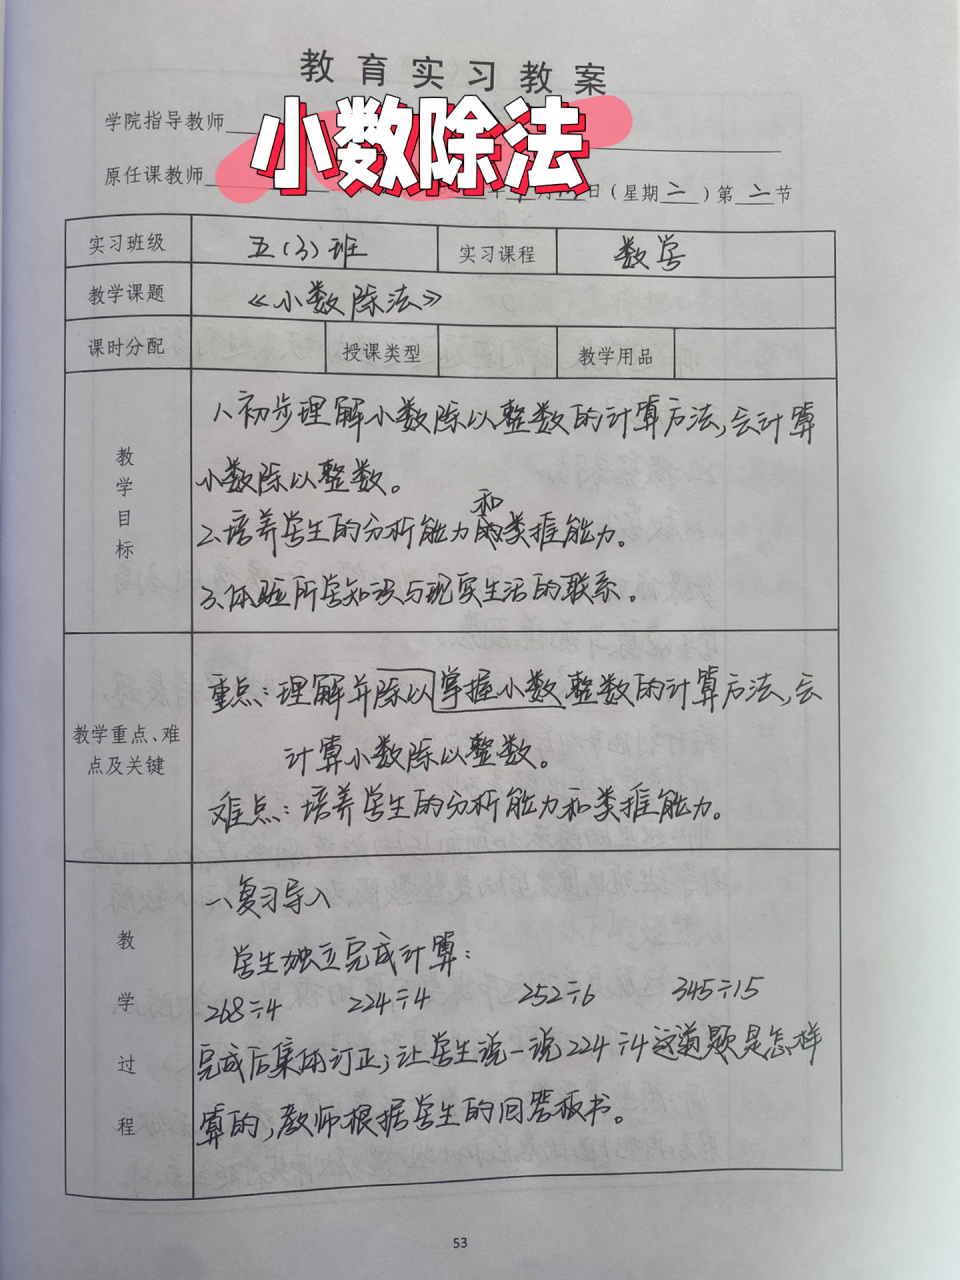 教育实习教案
小数除法
学院指导教师
原任课教师 日（星期二）第二节
实习班级 五（3）班 实习课程 数学
教学课题 《小数除法》
课时分配 授课类型 教学用品
教学目标
1、初步理解小数除以整数的计算方法，会计算
小数除以整数。
和
2、培养学生的分析能力的类推能力。
3、体验所学知识与现实生活的联系。
教学重点、难
点及关键
重点：理解并除以掌握小数整数的计算方法，会
计算小数除以整数。
难点：培养学生的分析能力和类推能力。
教学过程
一、复习导入
学生独立完成计算：
268÷4 224÷4 252÷6 345÷15
完成后集体订正；让学生说一说224÷4这道题是怎样
算的，教师根据学生的回答板书。
53